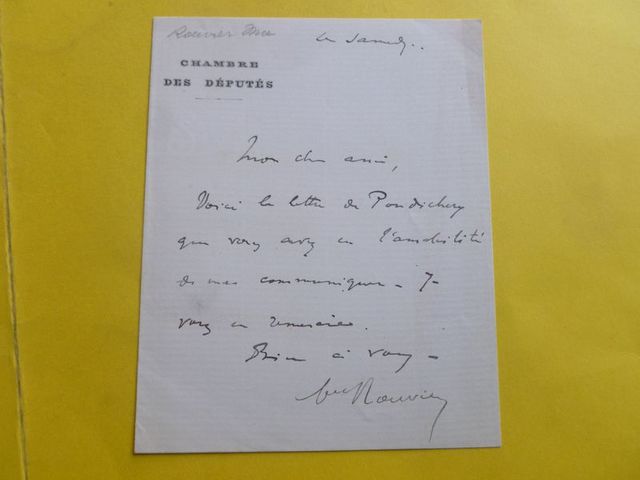 Rouvier Mce
Le Samedi..
CHAMBRE
DES DÉPUTÉS
Mon cher ami,
Voici la lettre de Pondichery
que vous avez eu l'amabilité
de me communiquer - Je
vous en remercie.
Bien à vous -
Rouvier